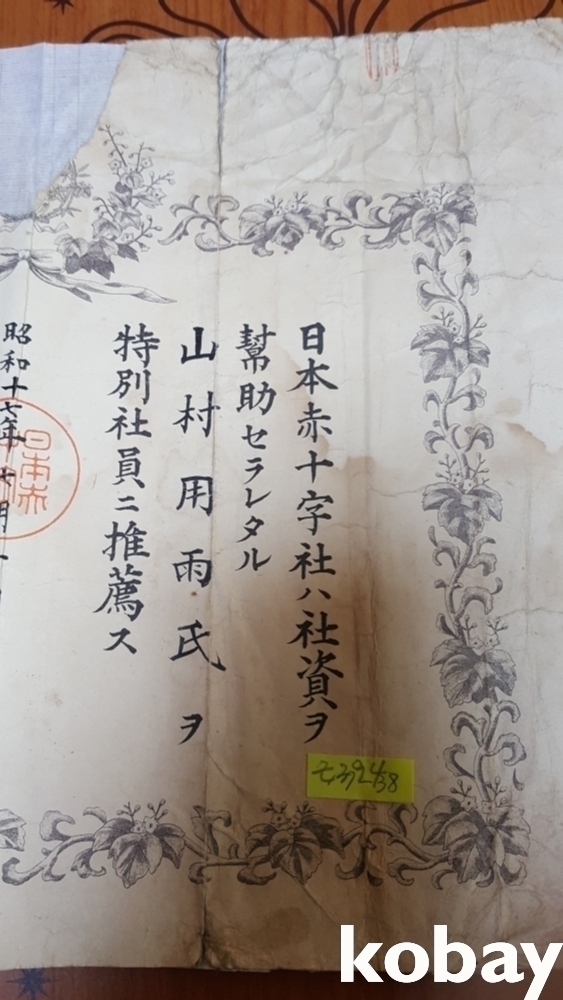 日本赤十字社ハ社資ヲ
幇助セラレタル
山村用雨氏ヲ
特別社員ニ推薦ス
昭和十七年七月一
日本赤
kobay